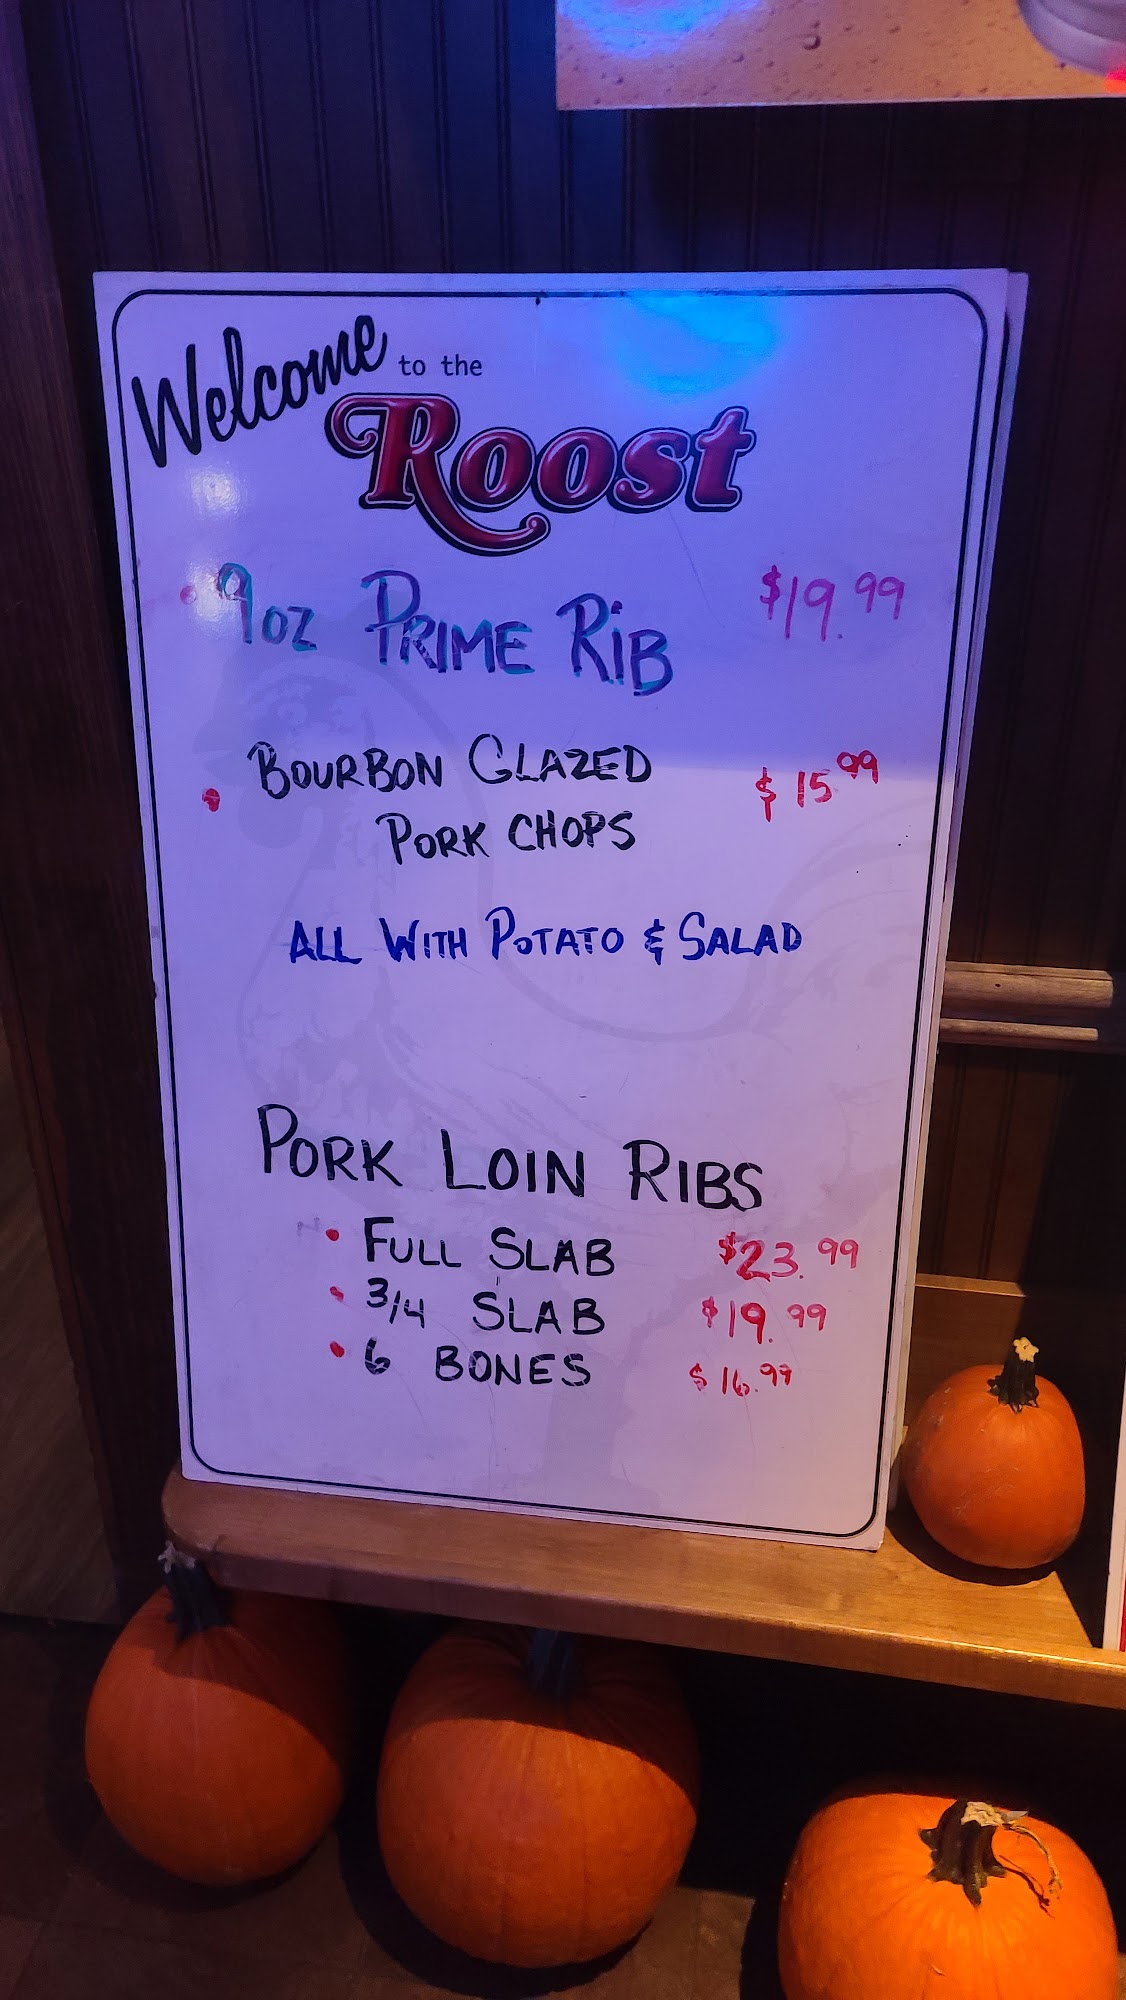 Welcome to the
Roost
• 9oz PRIME RIB $19.99
BOURBON GLAZED $15.99
• PORK CHOPS
ALL WITH POTATO & SALAD
PORK LOIN RIBS
• FULL SLAB $23.99
• 3/4 SLAB $19.99
• 6 BONES $16.99